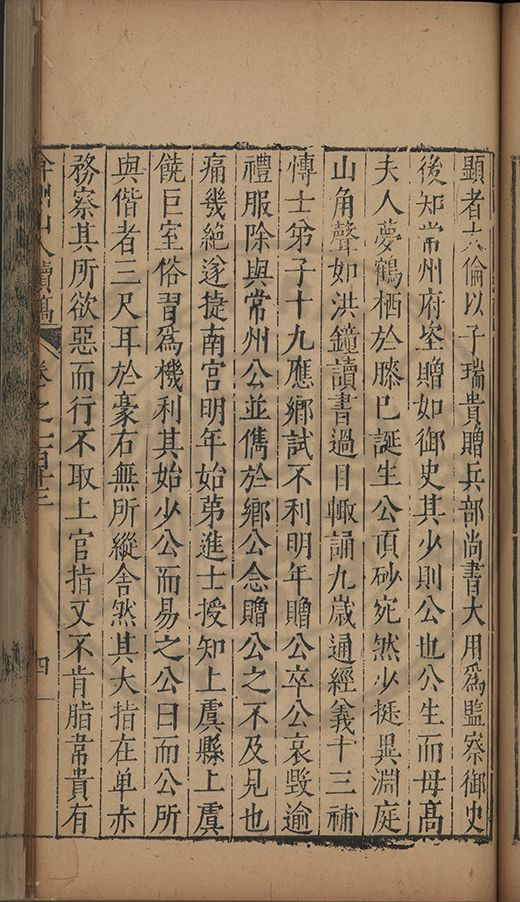 顯者大倫以子瑞貴贈兵部尚書大用爲監察御史
後知常州府坐贈如御史其少則公也公生而母髙
夫人夢鶴栖於滕巳誕生公頂砂宛然少挺異淵庭
山角聲如洪鐘讀書過目輙誦九歳通經義十三補
愽士弟子十九應鄉試不利明年贈公卒公哀毀逾
禮服除與常州公並儁於鄉公念贈公之不及見也
痛幾絶遂捷南宮明年始第進士授知上虞縣上虞
饒巨室俗習爲機利其始少公而易之公曰而公所
與偕者三尺耳於豪右無所縱舎然其大指在单赤
務察其所欲惡而行不取上官指又不肯脂韋貴有
弇州山人續稿
卷之一百廿三
四